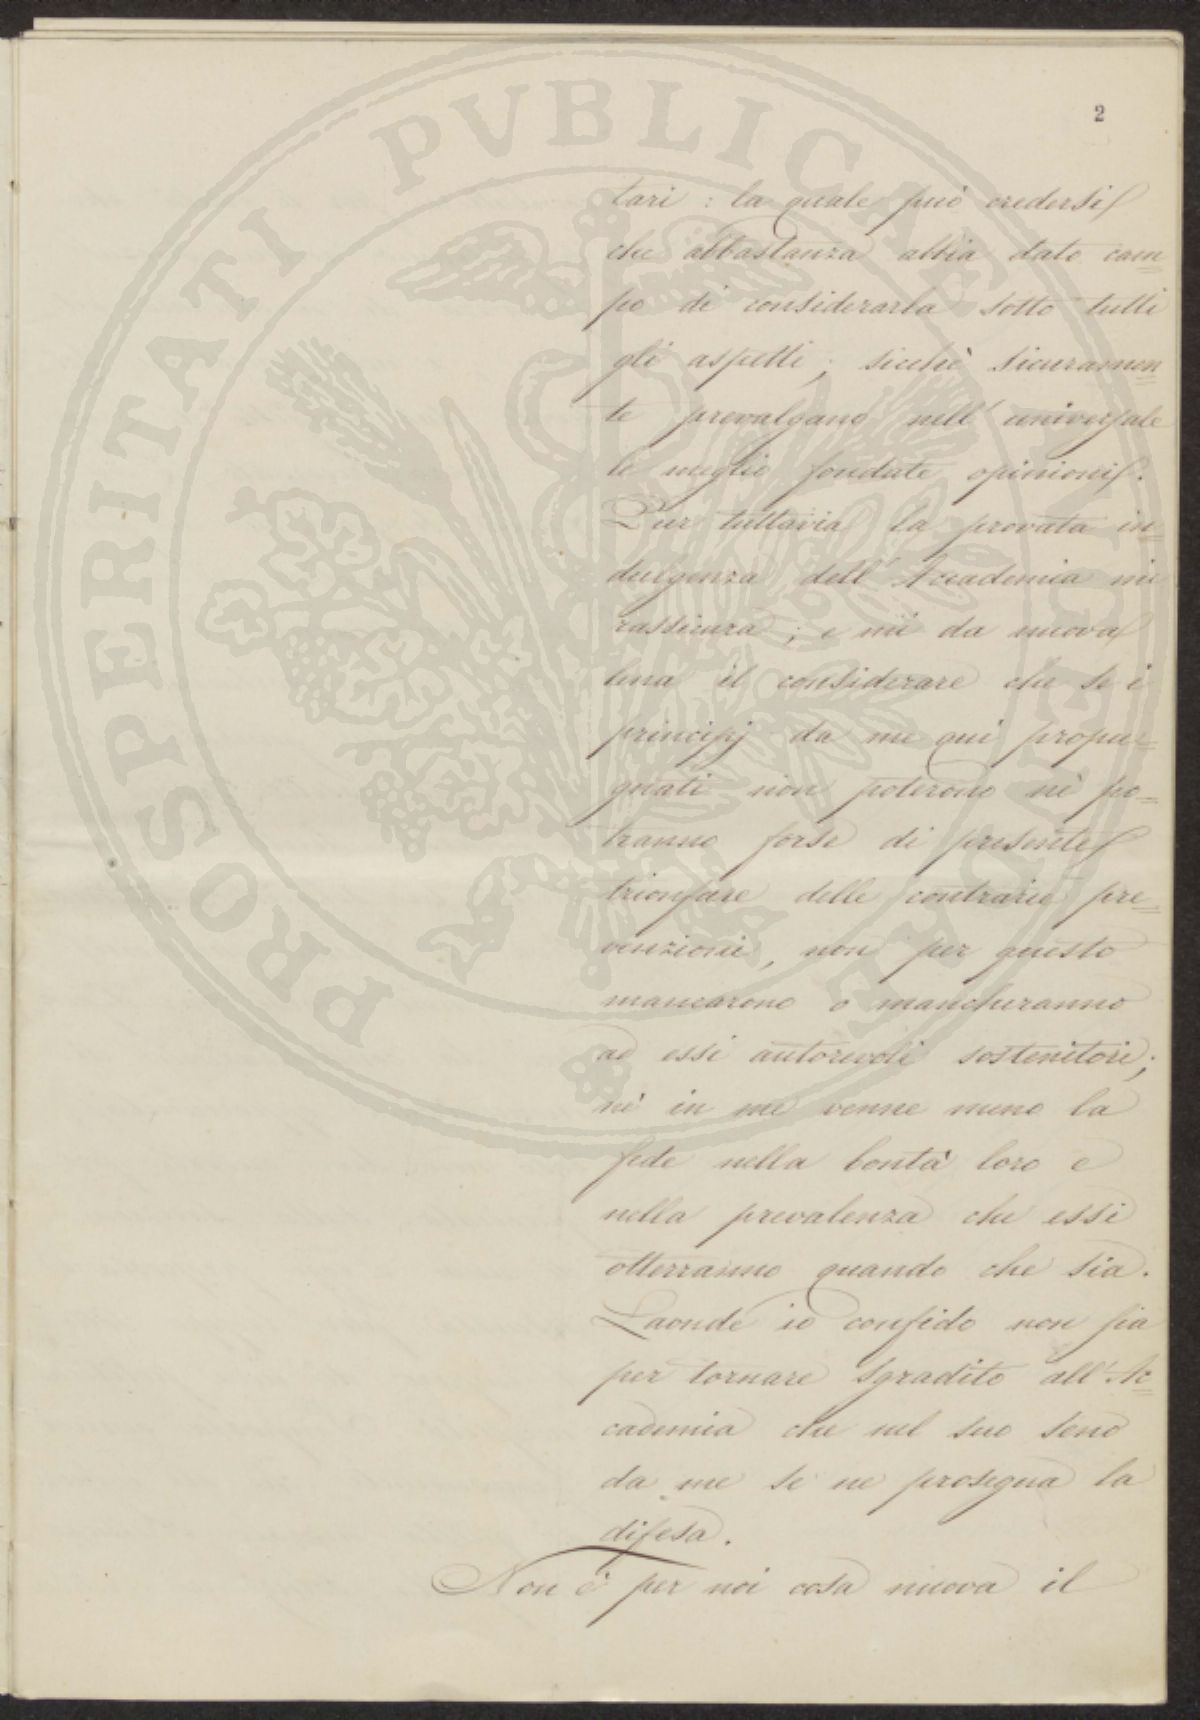 2
tari : la quale può credersi
che abbastanza abbia dato cam=
po di considerarla sotto tutti
gli aspetti ; sicchè sicuramen=
te prevalgano nell' universale
le meglio fondate opinioni.
Pur tuttavia la provata in=
dulgenza dell' Accademia mi
rassicura ; e mi da nuova
lena il considerare che se i
principj da me qui propu=
gnati non poterono nè po=
tranno forse di presente
trionfare delle contrarie pre=
venzioni, non per questo
mancarono o mancheranno
ad essi autorevoli sostenitori ;
nè in me venne meno la
fede nella bontà loro e
nella prevalenza che essi
otterranno quando che sia.
Laonde io confido non sia
per tornare sgradito all' Ac=
cademia che nel suo seno
da me se ne prosegua la
difesa.
Non è per noi cosa nuova il
PROSPERITATI PVBLICAE AVGENDAE